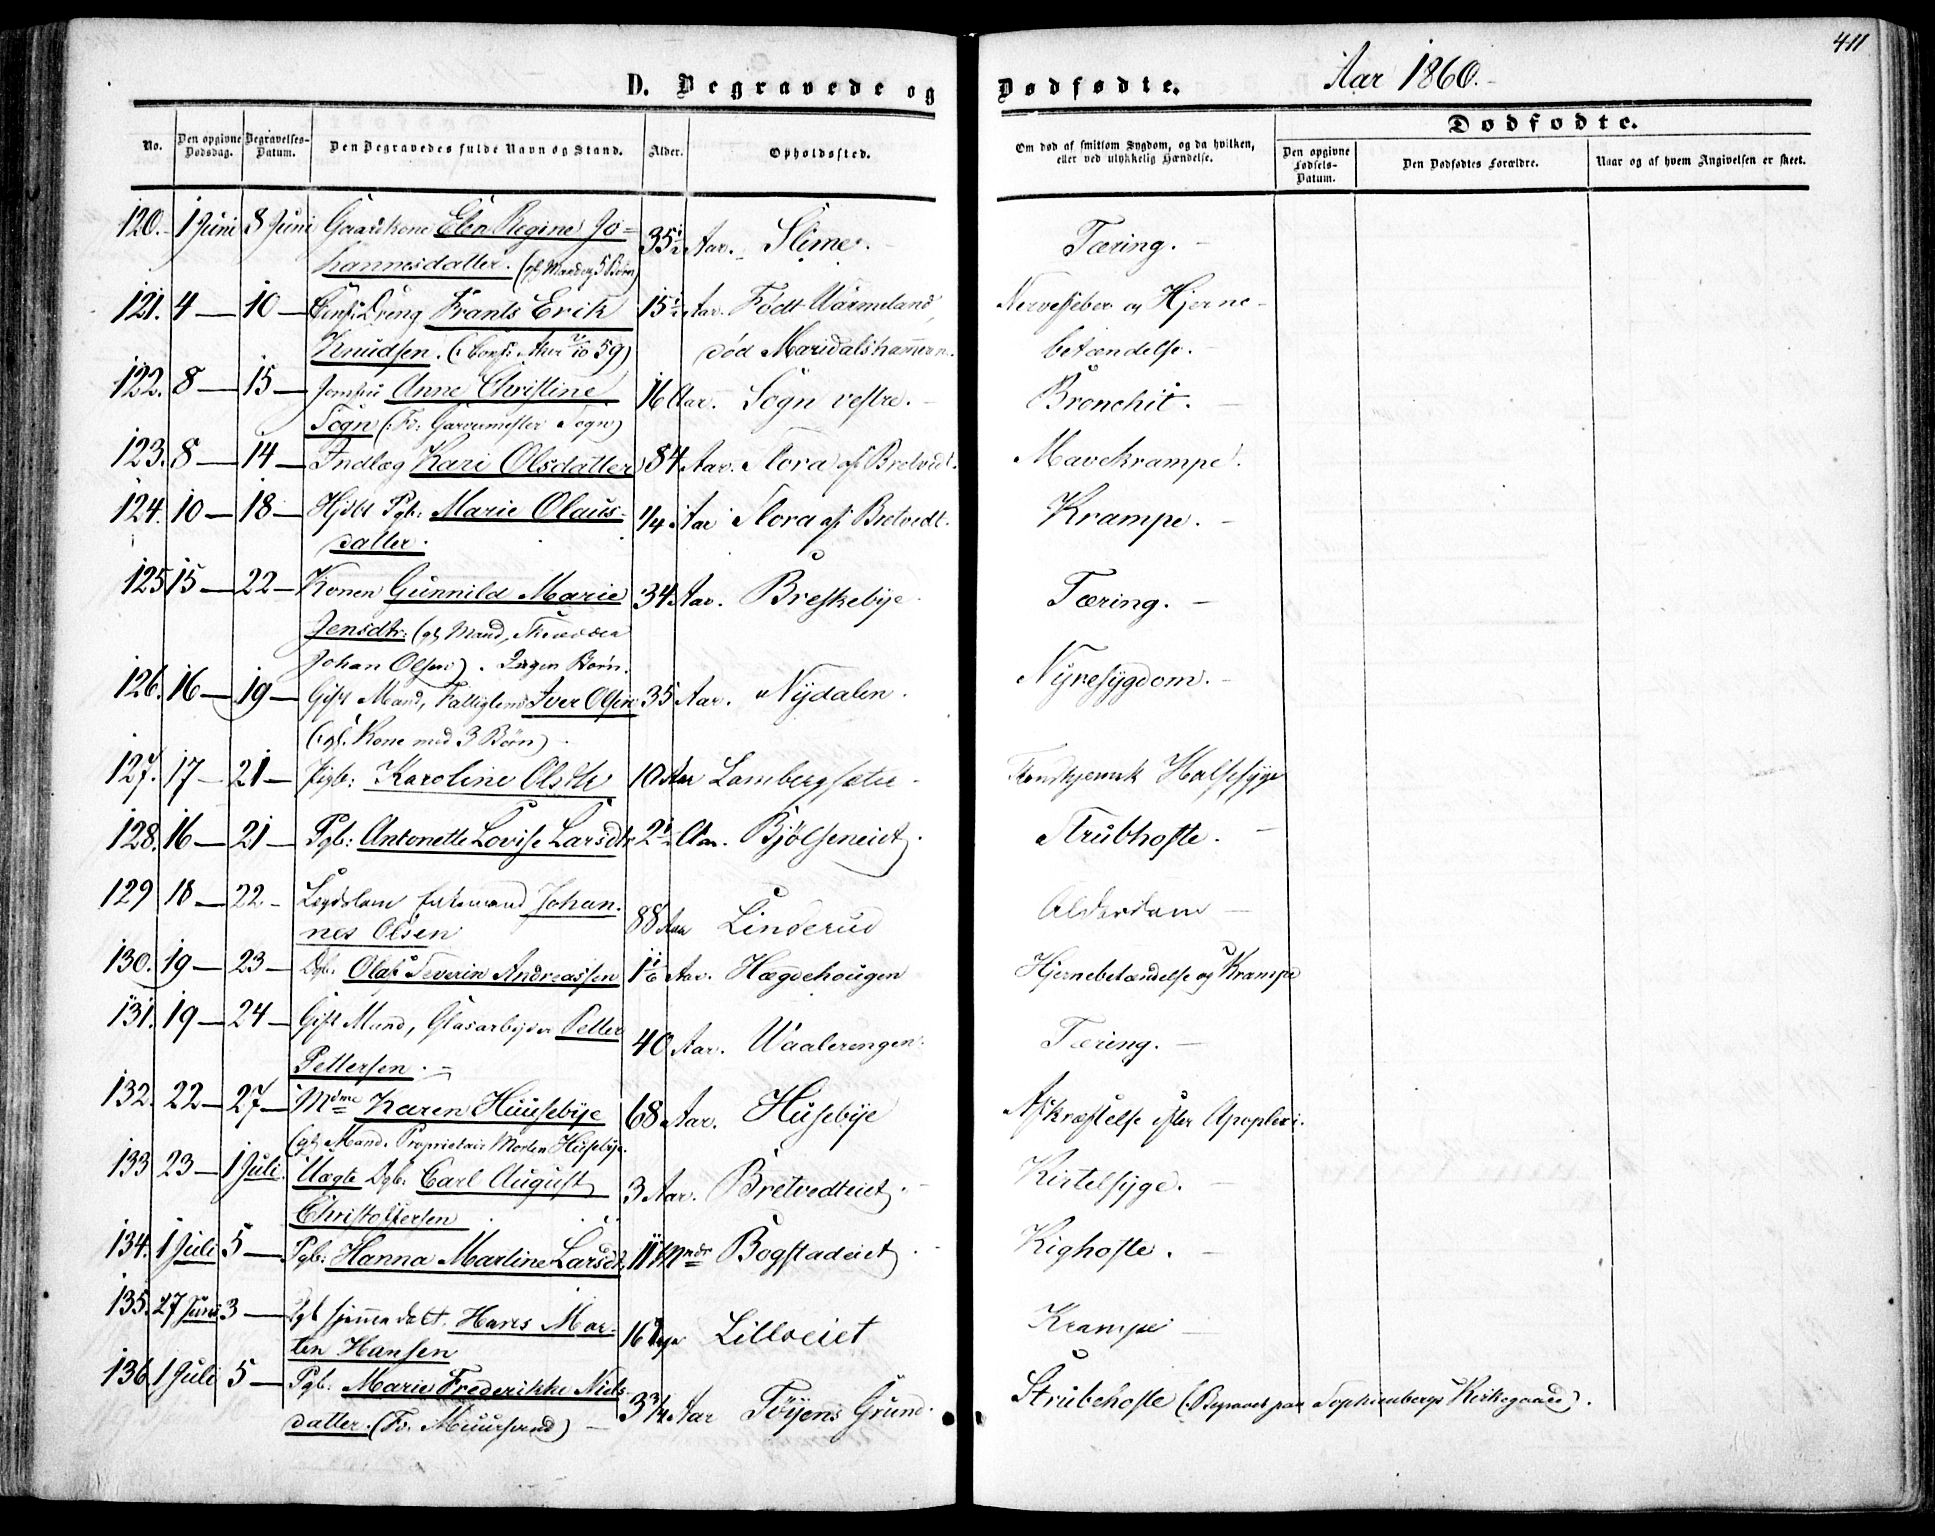 411
D. Begravede og Dødfødte. Aar 1860.
No. Den opgivne Dødsdag. Begravelses-Datum. Den Begravedes fulde Navn og Stand. Alder. Opholdssted. Om død af smitsom Sygdom, og da hvilken, eller ved ulykkelig Hændelse.
Dødfødte.
Den opgivne Fødsels-Datum. Den Dødfødtes Forældre. Naar og af hvem Angivelsen er skeet.
120. 1 Juni 8 Juni Gaardkone Elen Regine Jo- 35½ Aar. Slime. Tæring.
hannesdatter. (gl. Mand og 5 Børn)
121. 4 — 10 — Dreng Frants Erik 15½ Aar. Født Wärmeland, Nervefeber og Hjerne-
Knudsen. (: Conf. Aker 59) død Maridalshammern. betændelse.
122. 8 — 15 — Jomfru Anne Christine 16 Aar. Sogn vestre. Bronchit.
Sogn (: Fr: Garvermester Sogn)
123. 8 — 14 — Indlæg Kari Olsdatter 84 Aar. Flora af Bretvedt. Mavekrampe.
124. 10 — 18 — Pgb: Marie Olaus- 1/4 Aar Flora af Bretvedt. Krampe.
datter.
125 15 — 22 — Konen Gunnild Marie 34 Aar. Breskebye. Tæring.
Jensdtr: (gl. Mand,
Johan Olsen). Ingen Børn.
126. 16 — 19 — Gift Mand, Fattiglem Iver Olsen 35 Aar. Nydalen. Nyresygdom.
(: gl. Kone med 3 Børn).
127. 17 — 21 — Pigb: Karoline Olsdtr 10 Aar Lambergsæter Halssyge
128. 16 — 21 — Pgb: Antonette Lovise Larsdtr 2½ Aar. Bjølseneiet. Strubhoste.
129 18 — 22. - Lægdslem Enkemand Johan- 88 Aar Linderud Alderdom
nes Olsen
130. 19 — 23 — Dgb. Olaf Severin Andreassen 1 1/6 Aar. Hægdehougen Hjernebetændelse og Krampe
131. 19 — 24 — Gift Mand, Glasarbeider Petter 40 Aar. Waalerengen. Tæring.
Pettersen.
132. 22 — 27 — Mdme Karen Huusebye 68 Aar. Husebye Afkræftelse efter Apoplexi.
(gl. Mand. Proprietair Morten Husebye.
133 23 — 1 Juli. Uægte Dgb. Carl August 3 Aar. Bretvedteiet. Kirtelsyge.
Christoffersen
134. 1 Juli 5 — Pgb: Hanna Martine Larsdtr. 11 Mndr Bogstadeiet. Kighoste.
135. 27 Juni 3 — Dgb hjemmedøbt. Hans Mar- 16 Dage Lilloeiet Krampe
ten Hansen
136. 1 Juli 5 — Pgb: Marie Frederikke Niels- 3¾ Aar Tøyens Grund. Strubehoste (: Begravet paa Sophienbergs Kirkegaard).
datter. (Fr. Muursvend)